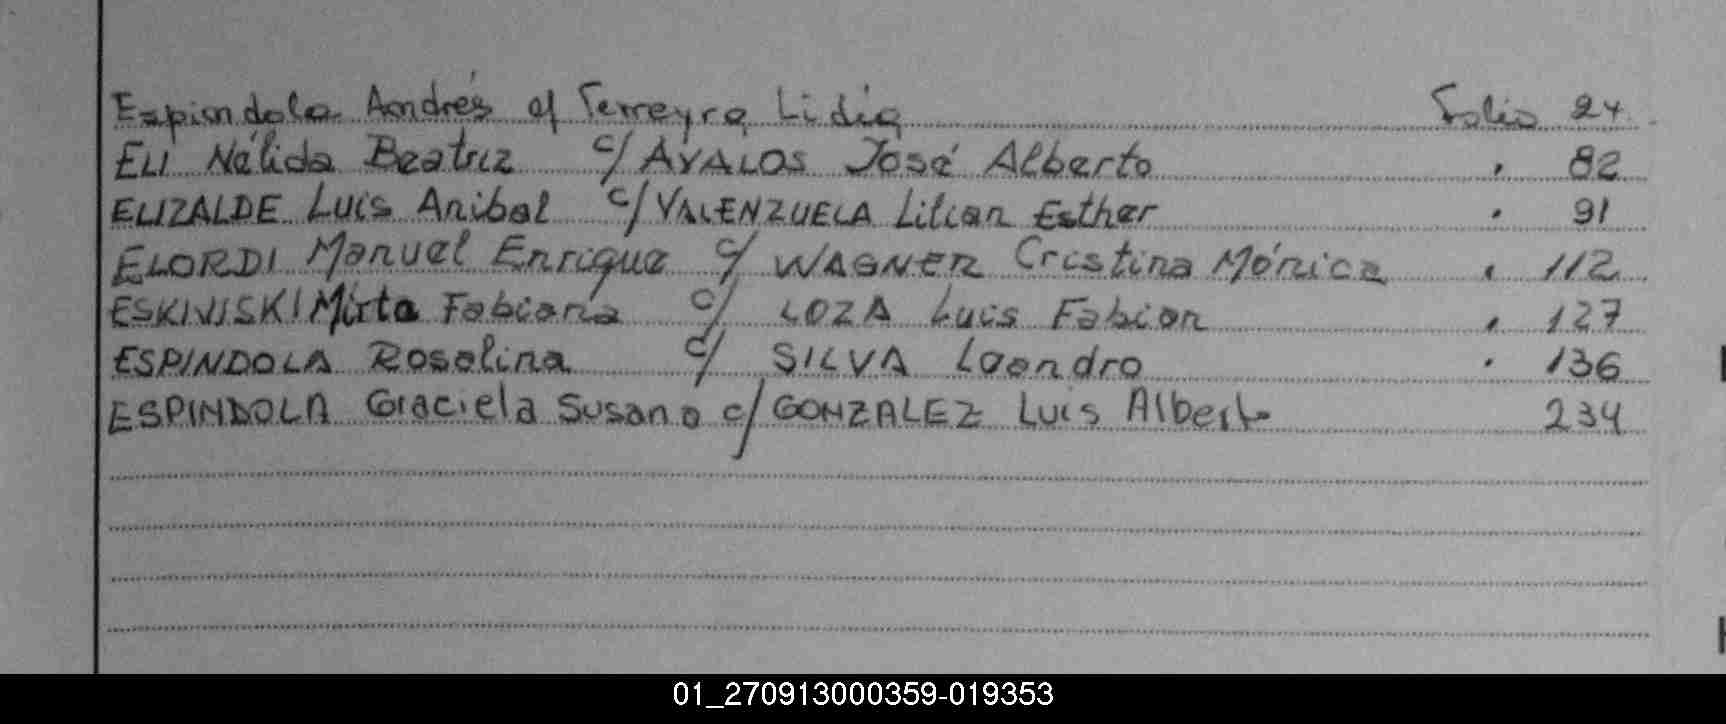 Espindola Andrés c/ Ferreyra Lidia Folio 24
ELI Nélida Beatriz c/ AYALOS José Alberto " 82
ELIZALDE Luis Anibal c/ VALENZUELA Lilian Esther " 91
ELORDI Manuel Enrique c/ WAGNER Cristina Mónica " 112
ESKIVISKI Mirta Fabiana c/ LOZA Luis Fabian " 127
ESPINDOLA Rosalina c/ SILVA Leandro " 136
ESPINDOLA Graciela Susana c/ GONZALEZ Luis Alberto 234
01_270913000359-019353